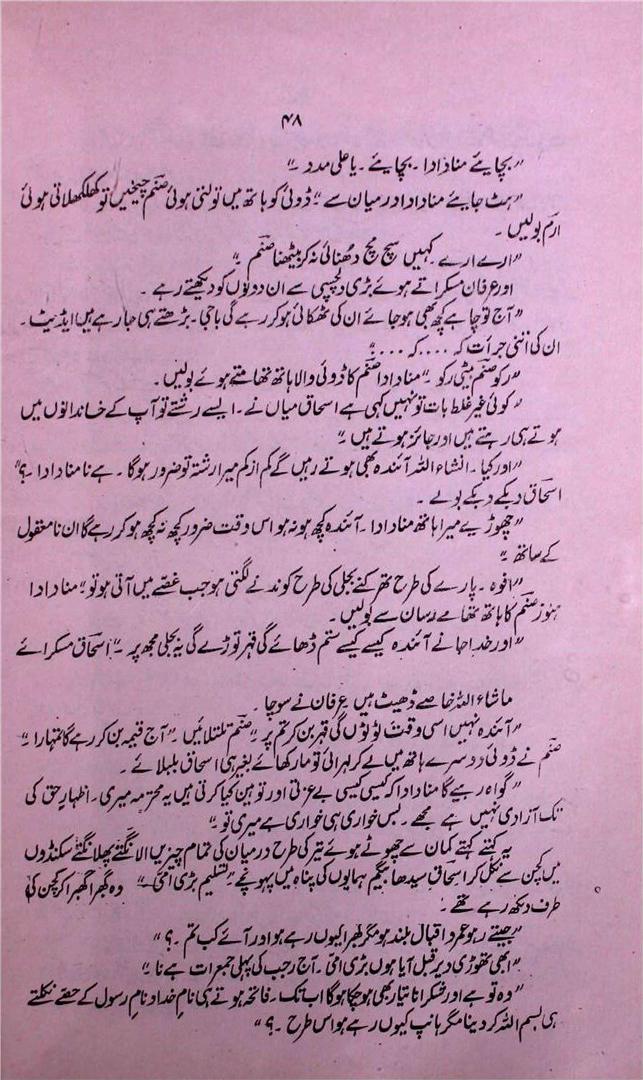 ۴۸
”بچایئے منا دادا ۔ بچایئے ۔ یا علی مدد ۔“
”ہٹ جایئے منا دادا درمیان سے“ ڈوئی کو ہاتھ میں تولتی ہوئی صنم چیخیں تو کھلکھلاتی ہوئی
ارم بولیں ۔
”ارے ارے کہیں سچ مچ دھنائی نہ کر بیٹھنا صنم ۔“
اور عرفان مسکراتے ہوئے بڑی دلچسپی سے ان دونوں کو دیکھتے رہے ۔
”آج تو چاہے کچھ بھی ہو جائے ان کی ٹھکائی ہو کر رہے گی باجی ۔ بڑھتے ہی جا رہے ہیں ایڈیٹ ۔
ان کی اتنی جرأت کہ .... کہ ....“
”رکو صنم بیٹی رکو ۔“ منا دادا صنم کا ڈوئی والا ہاتھ تھامتے ہوئے بولیں ۔
”کوئی غیر غلط بات تو نہیں کہی ہے اسحاق میاں نے ۔ ایسے رشتے تو آپ کے خاندانوں میں
ہوتے ہی رہتے ہیں اور جائز ہوتے ہیں ۔“
”اور کیا ۔ انشاء اللہ آئندہ بھی ہوتے رہیں گے کم از کم میرا رشتہ تو ضرور ہو گا ۔ ہے نا منا دادا ۔؟“
اسحاق دبکے دبکے بولے ۔
”چھوڑیے میرا ہاتھ منا دادا ۔ آئندہ کچھ ہو نہ ہو اس وقت ضرور کچھ نہ کچھ ہو کر رہے گا ان نامعقول
کے ساتھ ۔“
”افوہ ۔ پارے کی طرح تھرکنے بجلی کی طرح کوندنے لگتی ہو جب غصے میں آتی ہو تو“ منا دادا
ہنوز صنم کا ہاتھ تھامے رسان سے بولیں ۔
”اور خدا جانے آئندہ کیسے کیسے ستم ڈھائے گی قہر توڑے گی یہ بجلی مجھ پر ۔“ اسحاق مسکرائے
ماشاء اللہ خاصے ڈھیٹ ہیں عرفان نے سوچا ۔
”آئندہ نہیں اسی وقت ٹوٹوں گی قہر بن کر تم پر“ صنم تلملائیں ۔ ”آج قیمہ بن کر رہے گا تمہارا ۔“
صنم نے ڈوئی دوسرے ہاتھ میں لے کر لہرائی تو مار کھائے بغیر ہی اسحاق بلبلائے ۔
”گواہ رہیے گا منا دادا کہ کیسی کیسی بے عزتی اور توہین کیا کرتی ہیں یہ محترمہ میری ۔ اظہارِ حق کی
تک آزادی نہیں ہے مجھے ۔ بس خواری ہی خواری ہے میری تو ۔“
یہ کہتے کہتے کمان سے چھوٹے ہوئے تیر کی طرح درمیان کی تمام چیزیں الانگتے پھلانگتے سکنڈوں
میں کچن سے نکل کر اسحاق سیدھا بیگم ہمایوں کی پناہ میں پہونچے ۔ ”تسلیم بڑی امی ۔“ وہ گھبرا گھبرا کر کچن کی
طرف دیکھ رہے تھے ۔
”جیتے رہو عمر و اقبال بلند ہو مگر گھبرا کیوں رہے ہو اور آئے کب تم ۔؟“
”ابھی تھوڑی دیر قبل آیا ہوں بڑی امی ۔ آج رجب کی پہلی جمعرات ہے نا ۔“
”وہ تو ہے اور شکرانا تیار بھی ہو چکا ہو گا اب تک ۔ فاتحہ ہوتے ہی نامِ خدا و نامِ رسول کے حصے نکلتے
ہی بسم اللہ کر دینا مگر ہانپ کیوں رہے ہو اس طرح ۔؟“